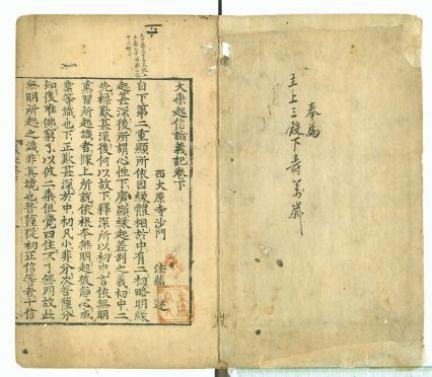 奉爲
主上三殿下壽萬歲
大乘起信論義記卷下
西大原寺沙門 法藏 述
自下第二重顯所依因緣體相於中有二初略明緣
起甚深後所謂心性下廣顯緣起差別之義初中二
先標歎甚深後何以故下釋深所以初中言依無明
熏習所起識者牒上所說依根本無明起彼靜心成
業等識也下正歎甚深於中初凡小非分次菩薩分
知後唯佛窮了以彼二乘但覺四住不了無明故此
無明所起之識非其境也菩薩從初正信等者十信